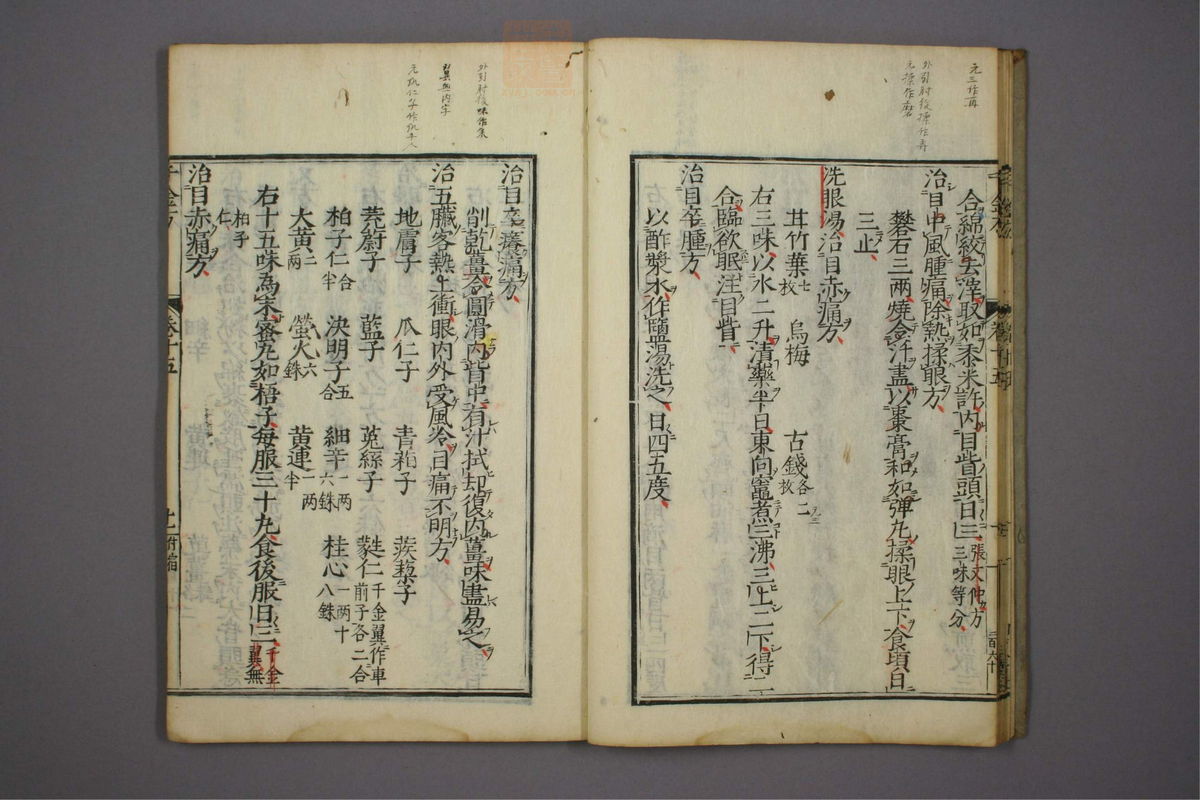 合綿絞去滓取如黍米許内目眥頭日三張文仲方三味等分
治目中風腫痛除熱揉眼方
礬石三兩燒令汁盡以棗膏和如彈丸揉眼上下食頃日
三止
洗眼湯治目赤痛方
苷竹葉七枚 烏梅 古錢各二枚
右三味以水二升漬藥半日東向竈煮三沸三上三下得二
合臨欲眠注目眥
治目卒腫方
以酢漿水作鹽湯洗之日四五度
治目卒癢痛方
削乾薑令圓滑内眥中有汁拭却復内薑味盡易之
治五臟客熱上衝眼内外受風冷目痛不明方
地膚子 瓜仁子 青葙子 蒺藜子
茺蔚子 藍子 菟絲子 蕤仁千金翼作車前子各二合
柏子仁合半 決明子五合 細辛一兩六銖 桂心一兩十八銖
大黃二兩 螢火六銖 黃連一兩半
右十五味為末蜜丸如梧子每服三十丸食後服日三千金翼無
柏子仁
治目赤痛方
卷十五
元三作再
元揉作磨
翼無内字
元三